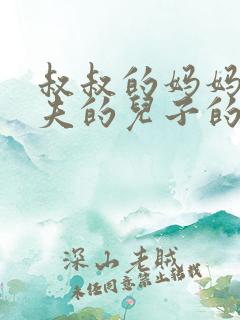 叔叔的妈妈
夫的兒子的
深山老贼
未经同意禁止转载